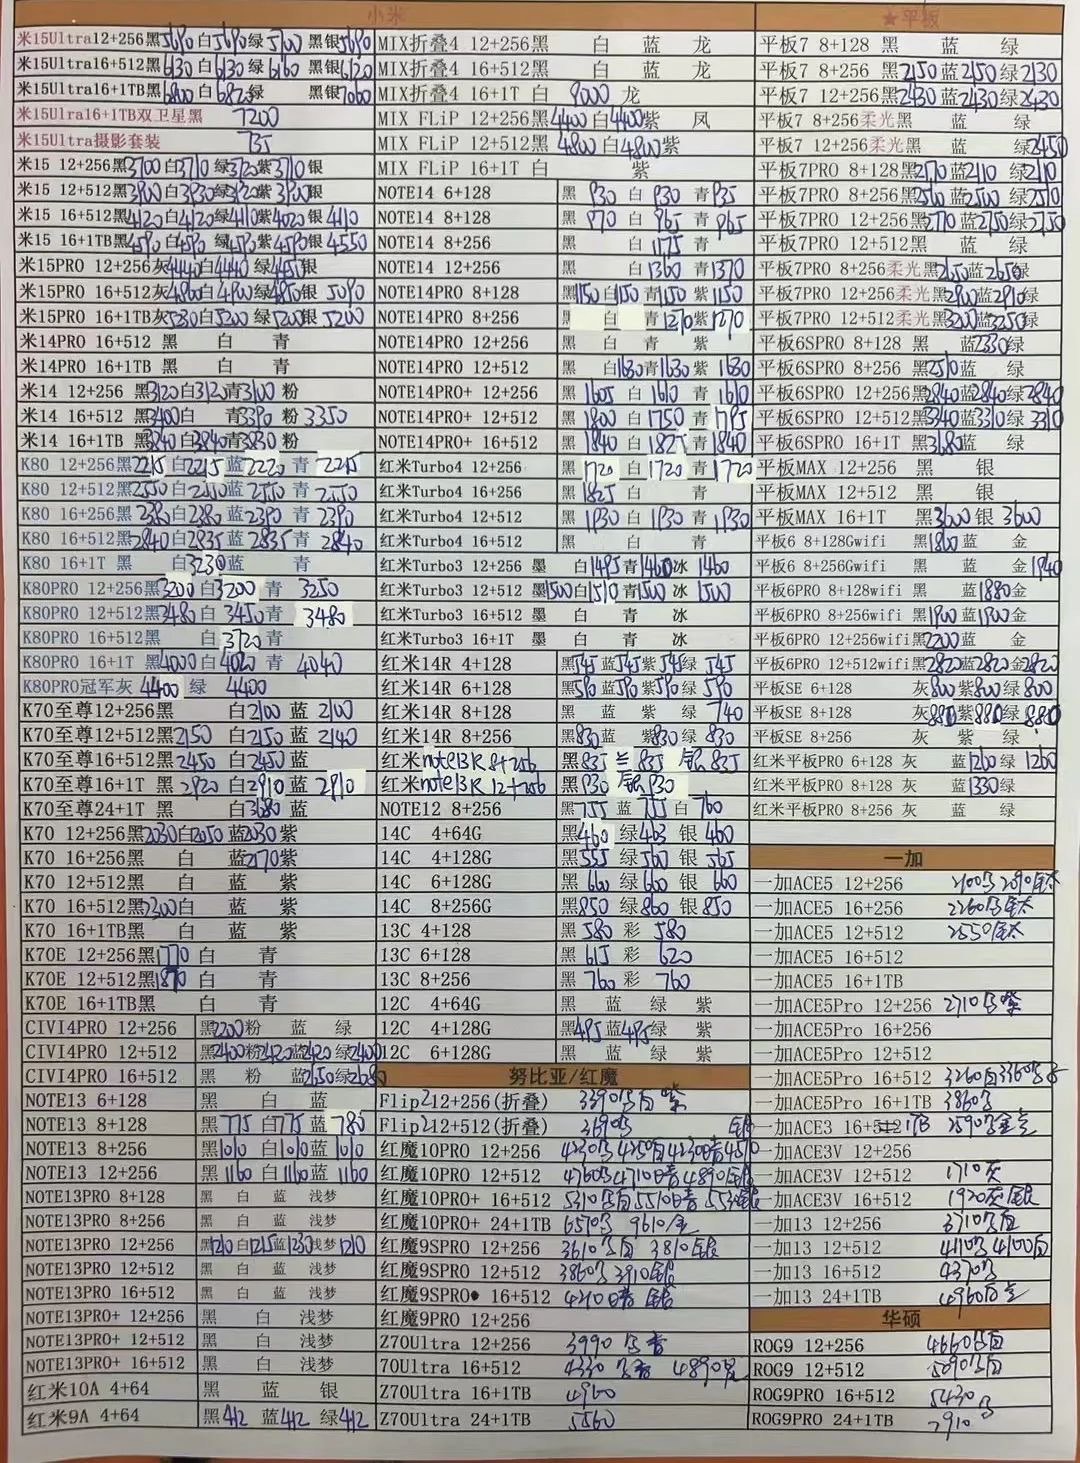 小米
米15Ultra12+256黑5690白5690绿5700 黑银5690
米15Ultra16+512黑6130白6130绿6160 黑银6120
米15Ultra16+1TB黑6800白6820绿 黑银7060
米15Ulra16+1TB双卫星黑 7200
米15Ultra摄影套装 735
米15 12+256黑3700白3710绿3720紫3710银
米15 12+512黑3900白3930绿3920紫3900银
米15 16+512黑4120白4120绿4110紫4020银4110
米15 16+1TB黑4590白4590绿4590紫4590银4550
米15PRO 12+256灰4440白4440绿4455银
米15PRO 16+512灰4900白4900绿4850银 5090
米15PRO 16+1TB灰5230白5200绿5200银5200
米14PRO 16+512 黑 白 青
米14PRO 16+1TB 黑 白 青
米14 12+256 黑3120白3120青3100 粉
米14 16+512 黑3400白 青3390 粉 3350
米14 16+1TB 黑3840白3840青3830 粉
K80 12+256黑2215白2215蓝2220青2215
K80 12+512黑2550白2550蓝2550青2550
K80 16+256黑2380白2380蓝2390青2390
K80 16+512黑2840白2835蓝2835青2840
K80 16+1T 黑 白3230蓝 青
K80PRO 12+256黑3200白3200青 3250
K80PRO 12+512黑3480白3450青 3480
K80PRO 16+512黑 白3720青
K80PRO 16+1T 黑4000白4020青 4040
K80PRO冠军灰 4400 绿 4400
K70至尊12+256黑 白2100 蓝 2100
K70至尊12+512黑2150 白2150 蓝 2140
K70至尊16+512黑2450 白2450 蓝
K70至尊16+1T 黑 2920 白2910蓝 2910
K70至尊24+1T 黑 白3680蓝
K70 12+256黑2030白2050蓝2030紫
K70 16+256黑 白 蓝2170紫
K70 12+512黑 白 蓝 紫
K70 16+512黑2300白 蓝 紫
K70 16+1TB黑 白 蓝 紫
K70E 12+256黑1770 白 青
K70E 12+512黑1870 白 青
K70E 16+1TB黑 白 青
CIVI4PRO 12+256 黑2200粉 蓝 绿
CIVI4PRO 12+512 黑2400粉2420蓝2420绿2400
CIVI4PRO 16+512 黑 粉 蓝2650绿2680
NOTE13 6+128 黑 白 蓝
NOTE13 8+128 黑775 白775蓝780
NOTE13 8+256 黑1010 白1010蓝1010
NOTE13 12+256 黑1160 白1160蓝1160
NOTE13PRO 8+128 黑 白 蓝 浅梦
NOTE13PRO 8+256 黑 白 蓝 浅梦
NOTE13PRO 12+256 黑1210白1215蓝1230浅梦1210
NOTE13PRO 12+512 黑 白 蓝 浅梦
NOTE13PRO 16+512 黑 白 蓝 浅梦
NOTE13PRO+ 12+256 黑 白 浅梦
NOTE13PRO+ 12+512 黑 白 浅梦
NOTE13PRO+ 16+512 黑 白 浅梦
红米10A 4+64 黑 蓝 银
红米9A 4+64 黑412 蓝412 绿412
MIX折叠4 12+256黑 白 蓝 龙
MIX折叠4 16+512黑 白 蓝 龙
MIX折叠4 16+1T 白 9000 龙
MIX FLiP 12+256黑4400白4400紫 凤
MIX FLiP 12+512黑4800白4800紫
MIX FLiP 16+1T 白 紫
NOTE14 6+128 黑 930 白 930 青935
NOTE14 8+128 黑 970 白 965 青965
NOTE14 8+256 黑 白1175 青
NOTE14 12+256 黑 白1360 青1370
NOTE14PRO 8+128 黑1150白1150青1150紫1150
NOTE14PRO 8+256 黑 白 青1270紫1270
NOTE14PRO 12+256 黑 白 青 紫
NOTE14PRO 12+512 黑 白1630青1630紫 1630
NOTE14PRO+ 12+256 黑 1605 白 1610 青 1610
NOTE14PRO+ 12+512 黑 1800 白 1750 青 1795
NOTE14PRO+ 16+512 黑 1840 白 1825 青 1840
红米Turbo4 12+256 黑1720 白1720青1720
红米Turbo4 16+256 黑1825白 青
红米Turbo4 12+512 黑 1930 白 1930青1930
红米Turbo4 16+512 黑 白 青
红米Turbo3 12+256 墨 白1495青1460冰 1460
红米Turbo3 12+512 墨1500白1510青1500冰 1500
红米Turbo3 16+512 墨 白 青 冰
红米Turbo3 16+1T 墨 白 青 冰
红米14R 4+128 黑545蓝545紫545绿 545
红米14R 6+128 黑590蓝590紫590绿 590
红米14R 8+128 黑 蓝 紫 绿 740
红米14R 8+256 黑830蓝 紫830绿 830
红米note13R 8+256 黑835 兰 835 银835
红米note13R 12+256 黑930 银930
NOTE12 8+256 黑755 蓝 755白 760
14C 4+64G 黑460 绿463 银 460
14C 4+128G 黑555 绿560 银 565
14C 6+128G 黑660 绿660 银 660
14C 8+256G 黑850 绿860 银850
13C 4+128 黑 580 彩 580
13C 6+128 黑 615 彩 620
13C 8+256 黑 760 彩 760
12C 4+64G 黑 蓝 绿 紫
12C 4+128G 黑495蓝495绿 紫
12C 6+128G 黑 蓝 绿 紫
努比亚/红魔
Flip212+256(折叠) 3390 白 紫
Flip212+512(折叠) 3690 银
红魔10PRO 12+256
红魔10PRO 12+512
红魔10PRO+ 16+512
红魔10PRO+ 24+1TB
红魔9SPRO 12+256 3610 白 3810银
红魔9SPRO 12+512 3860 3910银
红魔9SPRO 16+512 4210 暗 银
红魔9PRO 12+256
Z70Ultra 12+256 3990
70Ultra 16+512 4330 4890
Z70Ultra 16+1TB 4960
Z70Ultra 24+1TB 5560
★平板
平板7 8+128 黑 蓝 绿
平板7 8+256 黑2150蓝2150绿2130
平板7 12+256黑2430蓝2430绿2430
平板7 8+256柔光黑 蓝 绿
平板7 12+256柔光黑 蓝 2450
平板7PRO 8+128黑2170蓝2110绿2110
平板7PRO 8+256黑2510蓝2500绿2510
平板7PRO 12+256黑2770蓝2750绿2750
平板7PRO 12+512黑 蓝 绿
平板7PRO 8+256柔光黑2650蓝2650绿
平板7PRO 12+256柔光黑2900蓝2910绿
平板7PRO 12+512柔光黑3200蓝3250绿
平板6SPRO 8+128 黑 蓝2330绿
平板6SPRO 8+256 黑2510蓝 绿
平板6SPRO 12+256黑2840蓝2840绿2840
平板6SPRO 12+512黑3340蓝3310绿 3310
平板6SPRO 16+1T 黑3680蓝 绿
平板MAX 12+256 黑 银
平板MAX 12+512 黑 银
平板MAX 16+1T 黑3600 银 3600
平板6 8+128Gwifi 黑1800蓝 金
平板6 8+256Gwifi 黑 蓝 金1940
平板6PRO 8+128wifi 黑 蓝1880金
平板6PRO 8+256wifi 黑1900蓝1900金
平板6PRO 12+256wifi黑2200蓝 金
平板6PRO 12+512wifi黑2820蓝2820金2820
平板SE 6+128 灰800紫800绿 800
平板SE 8+128 灰880紫880绿880
平板SE 8+256 灰 紫 绿
红米平板PRO 6+128 灰 蓝1260绿 1260
红米平板PRO 8+128 灰 蓝1330绿
红米平板PRO 8+256 灰 蓝 绿
一加
一加ACE5 12+256
一加ACE5 16+256 2260 钛
一加ACE5 12+512 2550 钛
一加ACE5 16+512
一加ACE5 16+1TB
一加ACE5Pro 12+256 2710 紫
一加ACE5Pro 16+256
一加ACE5Pro 12+512
一加ACE5Pro 16+512
一加ACE5Pro 16+1TB 3860
一加ACE3 16+ 1TB 2590
一加ACE3V 12+256
一加ACE3V 12+512 1710灰
一加ACE3V 16+512 1920灰 银
一加13 12+256 3710 白
一加13 12+512 4110 4100白
一加13 16+512 4370
一加13 24+1TB 4960
华硕
ROG9 12+256 4660 白
ROG9 12+512 5090 白
ROG9PRO 16+512 5430
ROG9PRO 24+1TB 7910